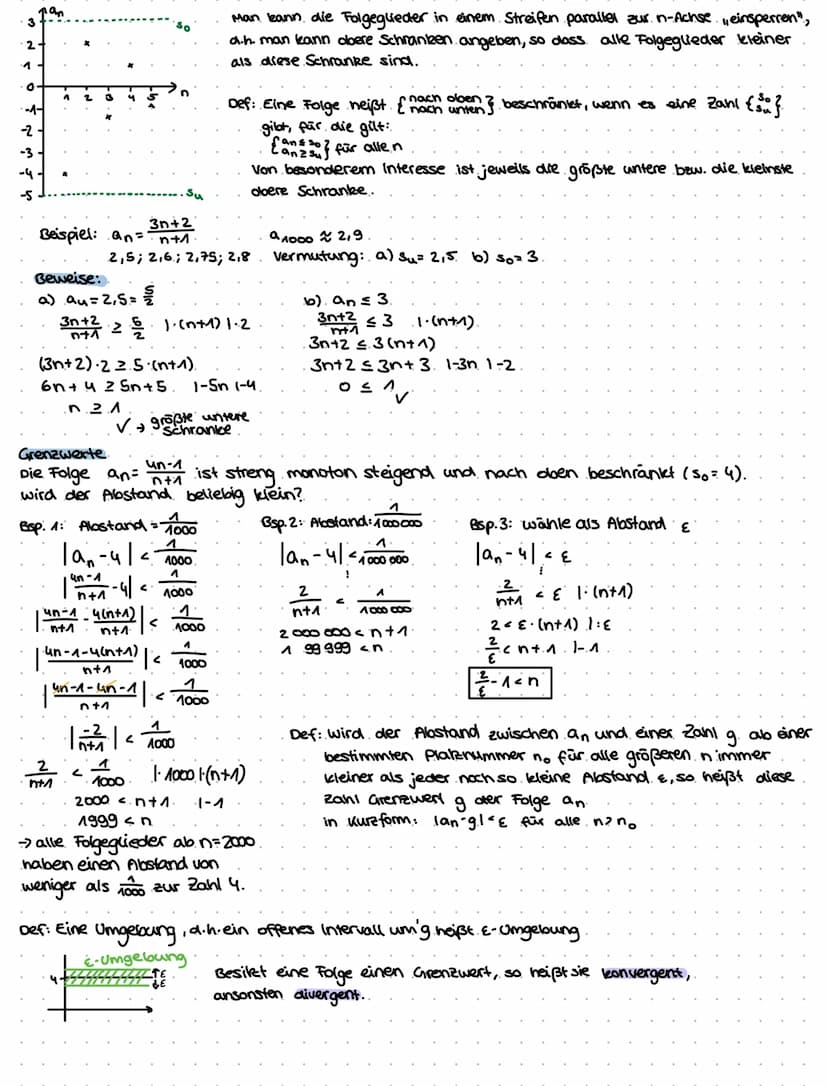 an
3
s₀
2
1
0
1 2 3 4 5 n
-1
-2
-3
-4
-5
su
Man kann die Folgeglieder in einem Streifen parallel zur n-Achse "einsperren",
d.h. man kann obere Schranken angeben, so dass alle Folgeglieder kleiner
als diese Schranke sind.
Def: Eine Folge heißt {nach oben / nach unten} beschränkt, wenn es eine Zahl {s₀ / su}
gibt, für die gilt:
{an ≤ s₀ / an ≥ su} für alle n
Von besonderem Interesse ist jeweils die größte untere bzw. die kleinste
obere Schranke.
Beispiel: an = (3n+2)/(n+1)    a₁₀₀₀ ≈ 2,9
2,5; 2,6; 2,75; 2,8    Vermutung: a) su = 2,5 b) s₀ = 3
Beweise:
a) au = 2,5 = 5/2
(3n+2)/(n+1) ≥ 5/2 |·(n+1) |·2
(3n+2)·2 ≥ 5·(n+1)
6n+4 ≥ 5n+5 |-5n |-4
n ≥ 1
✓ → größte untere
Schranke
b) an ≤ 3
(3n+2)/(n+1) ≤ 3 |·(n+1)
3n+2 ≤ 3(n+1)
3n+2 ≤ 3n+3 |-3n |-2
0 ≤ 1
✓
Grenzwerte
Die Folge an = (4n-1)/(n+1) ist streng monoton steigend und nach oben beschränkt (s₀ = 4).
Wird der Abstand beliebig klein?
Bsp. 1: Abstand = 1/1000
|an-4| < 1/1000
|(4n-1)/(n+1) - 4| < 1/1000
|(4n-1)/(n+1) - 4(n+1)/(n+1)| < 1/1000
|(4n-1-4(n+1))/(n+1)| < 1/1000
|(4n-1-4n-1)/(n+1)| < 1/1000
|-2/(n+1)| < 1/1000
2/(n+1) < 1/1000 |·1000 |·(n+1)
2000 < n+1 |-1
1999 < n
→ alle Folgeglieder ab n=2000
haben einen Abstand von
weniger als 1/1000 zur Zahl 4.
Bsp. 2: Abstand: 1/1000000
|an-4| < 1/1 000 000
!
2/(n+1) < 1/1 000 000
2 000 000 < n+1
1 99 999 < n
Bsp. 3: wähle als Abstand ε
|an-4| < ε
!
2/(n+1) < ε |·(n+1)
2 < ε·(n+1) |:ε
2/ε < n+1 |-1
2/ε - 1 < n
Def: Wird der Abstand zwischen an und einer Zahl g ab einer
bestimmten Platznummer n₀ für alle größeren n immer
kleiner als jeder noch so kleine Abstand ε, so heißt diese
Zahl Grenzwert g der Folge an
in Kurzform: |an-g| < ε für alle n > n₀
Def: Eine Umgebung, d.h. ein offenes Intervall um g heißt ε-Umgebung
ε-Umgebung
4
↑ε
↓ε
Besitzt eine Folge einen Grenzwert, so heißt sie konvergent,
ansonsten divergent.